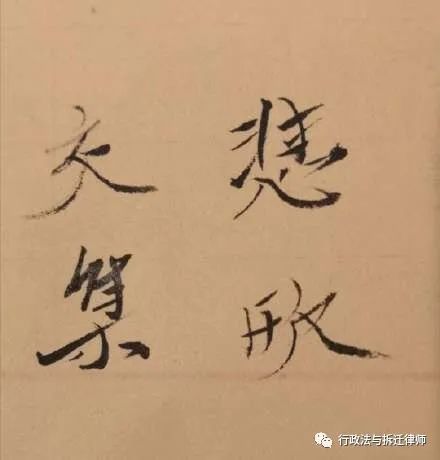 悲欣
交集
行政法与拆迁律师